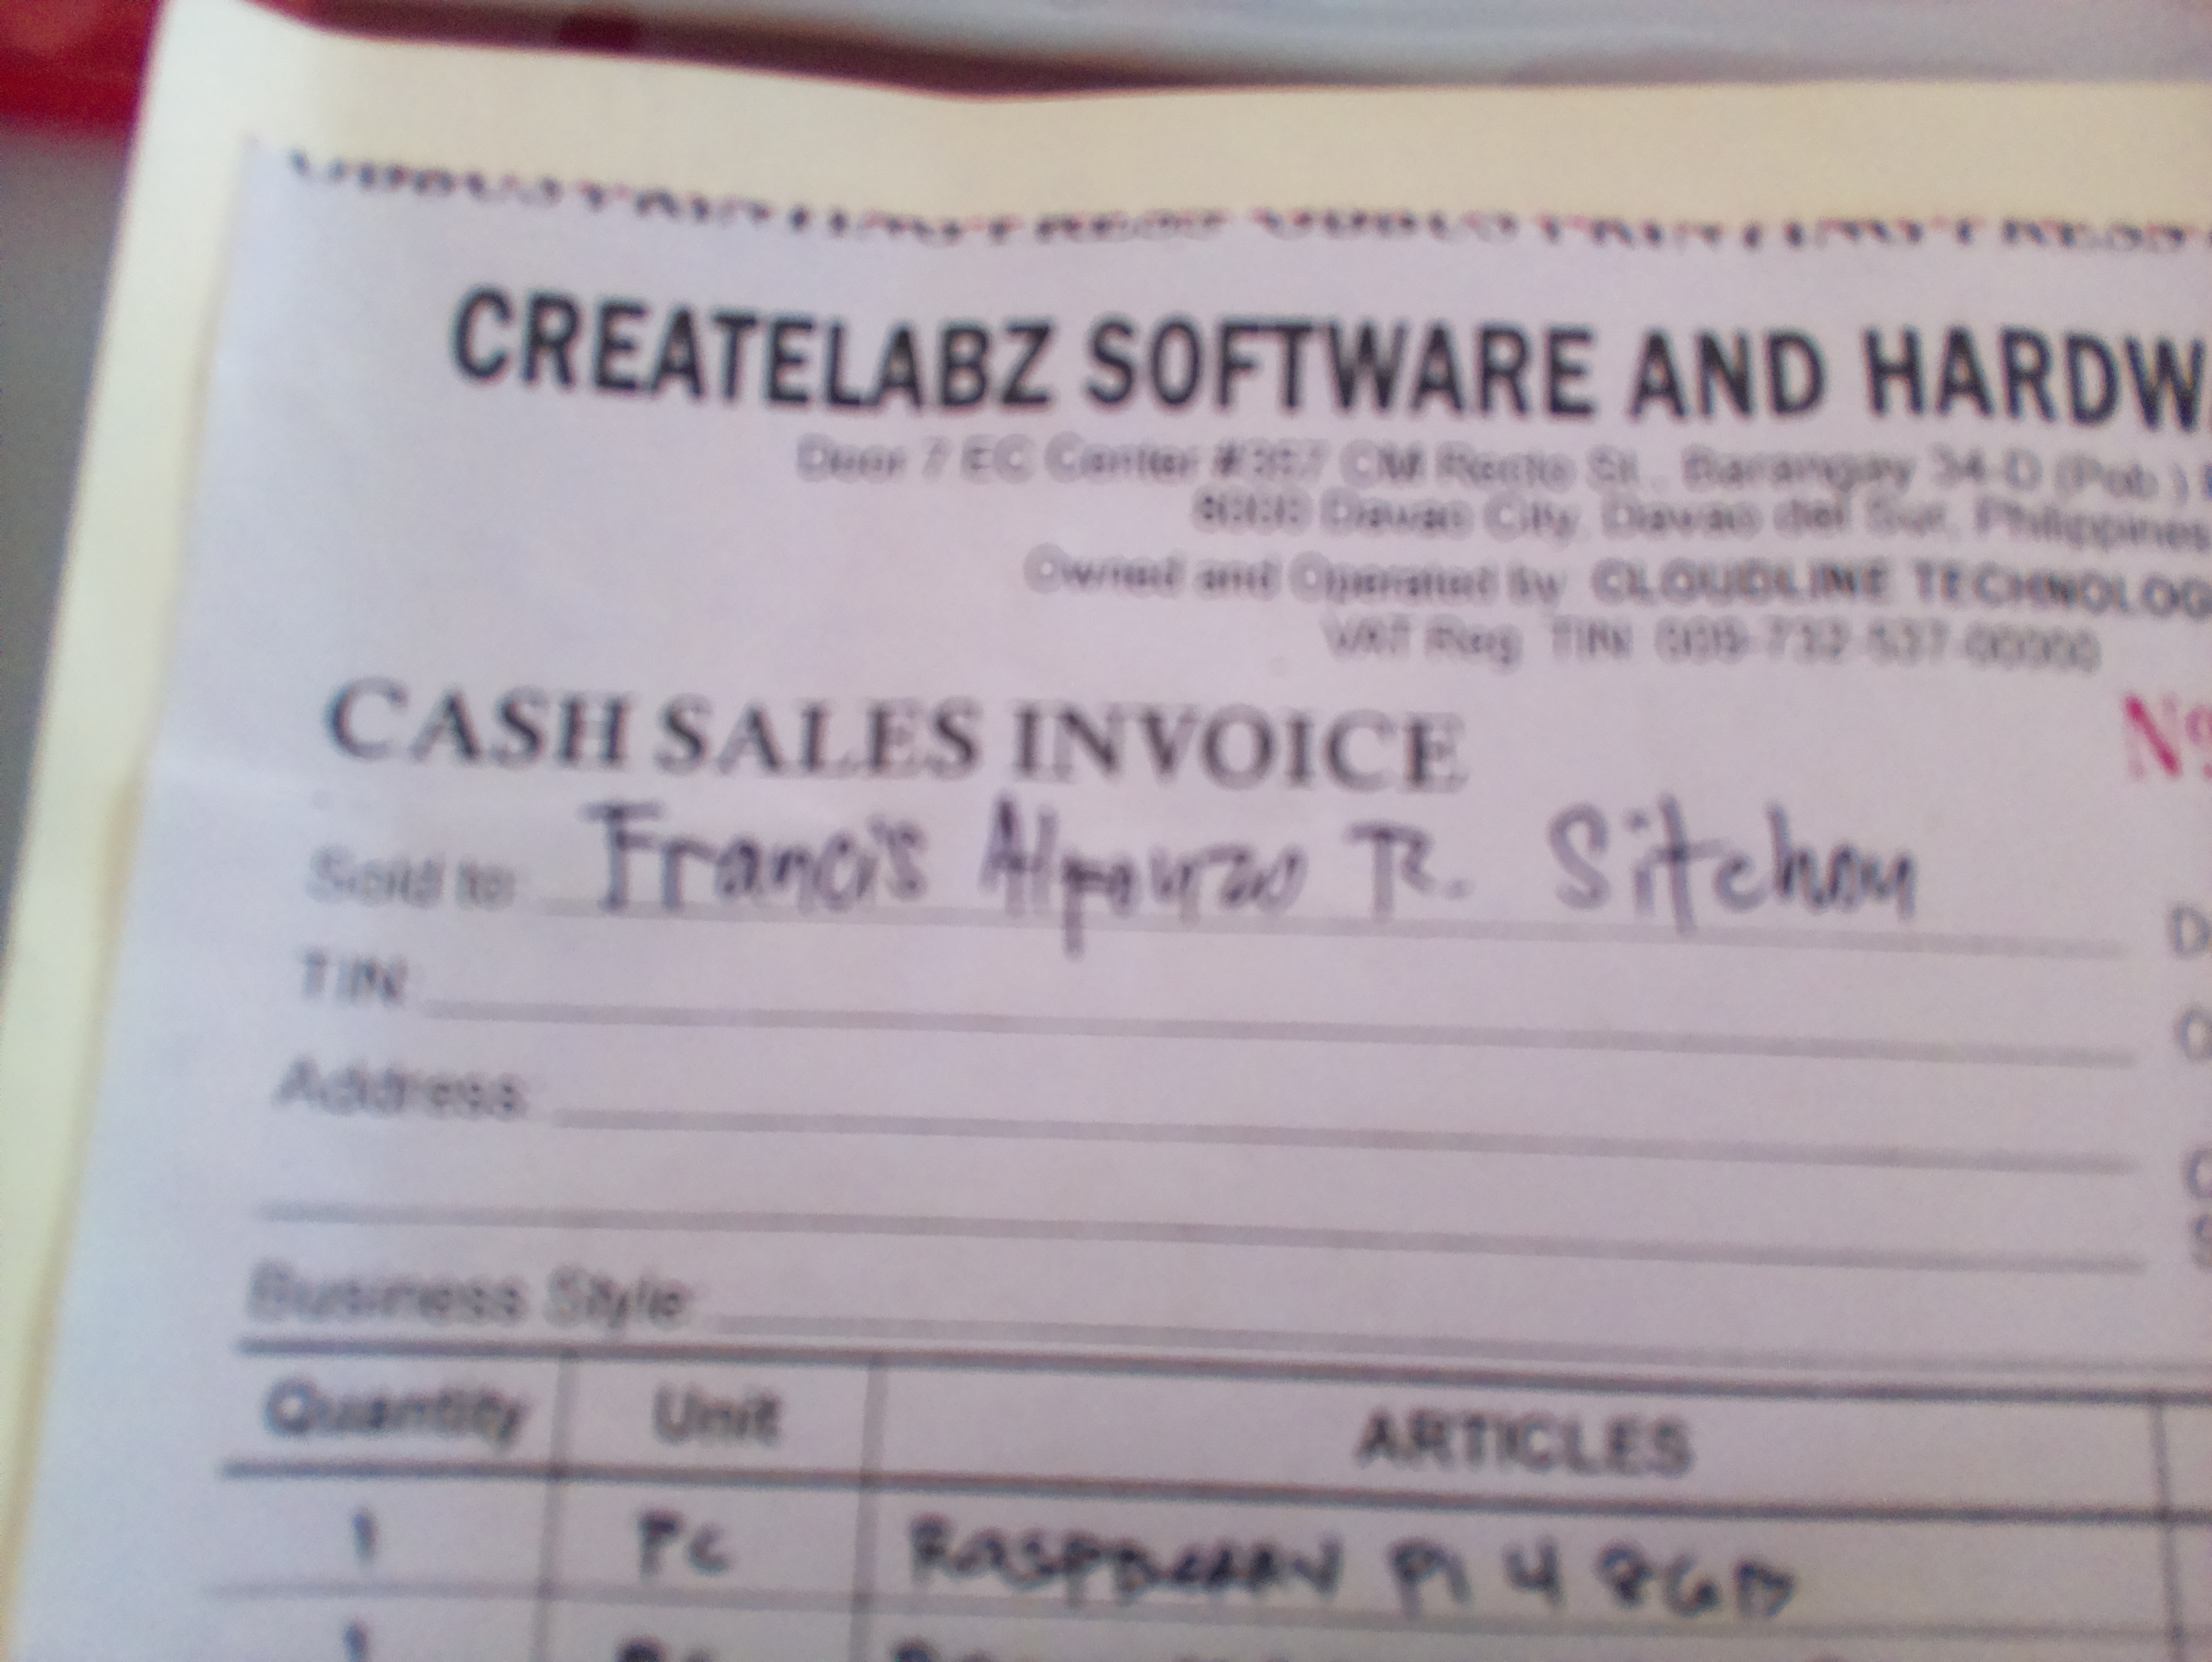 CREATELABZ SOFTWARE AND HARDW
Door 7 EC Center #357 CM Recto St., Barangay 34-D (Pob.)
8000 Davao City, Davao del Sur, Philippines
Owned and Operated by: CLOUDLINE TECHNOLOG
VAT Reg. TIN:
CASH SALES INVOICE
Nº
Sold to: Francis Alfonzo R. Sitchon
TIN:
Address:
Business Style:
Quantity Unit ARTICLES
1 Pc RASPBERRY Pi 4 8GB